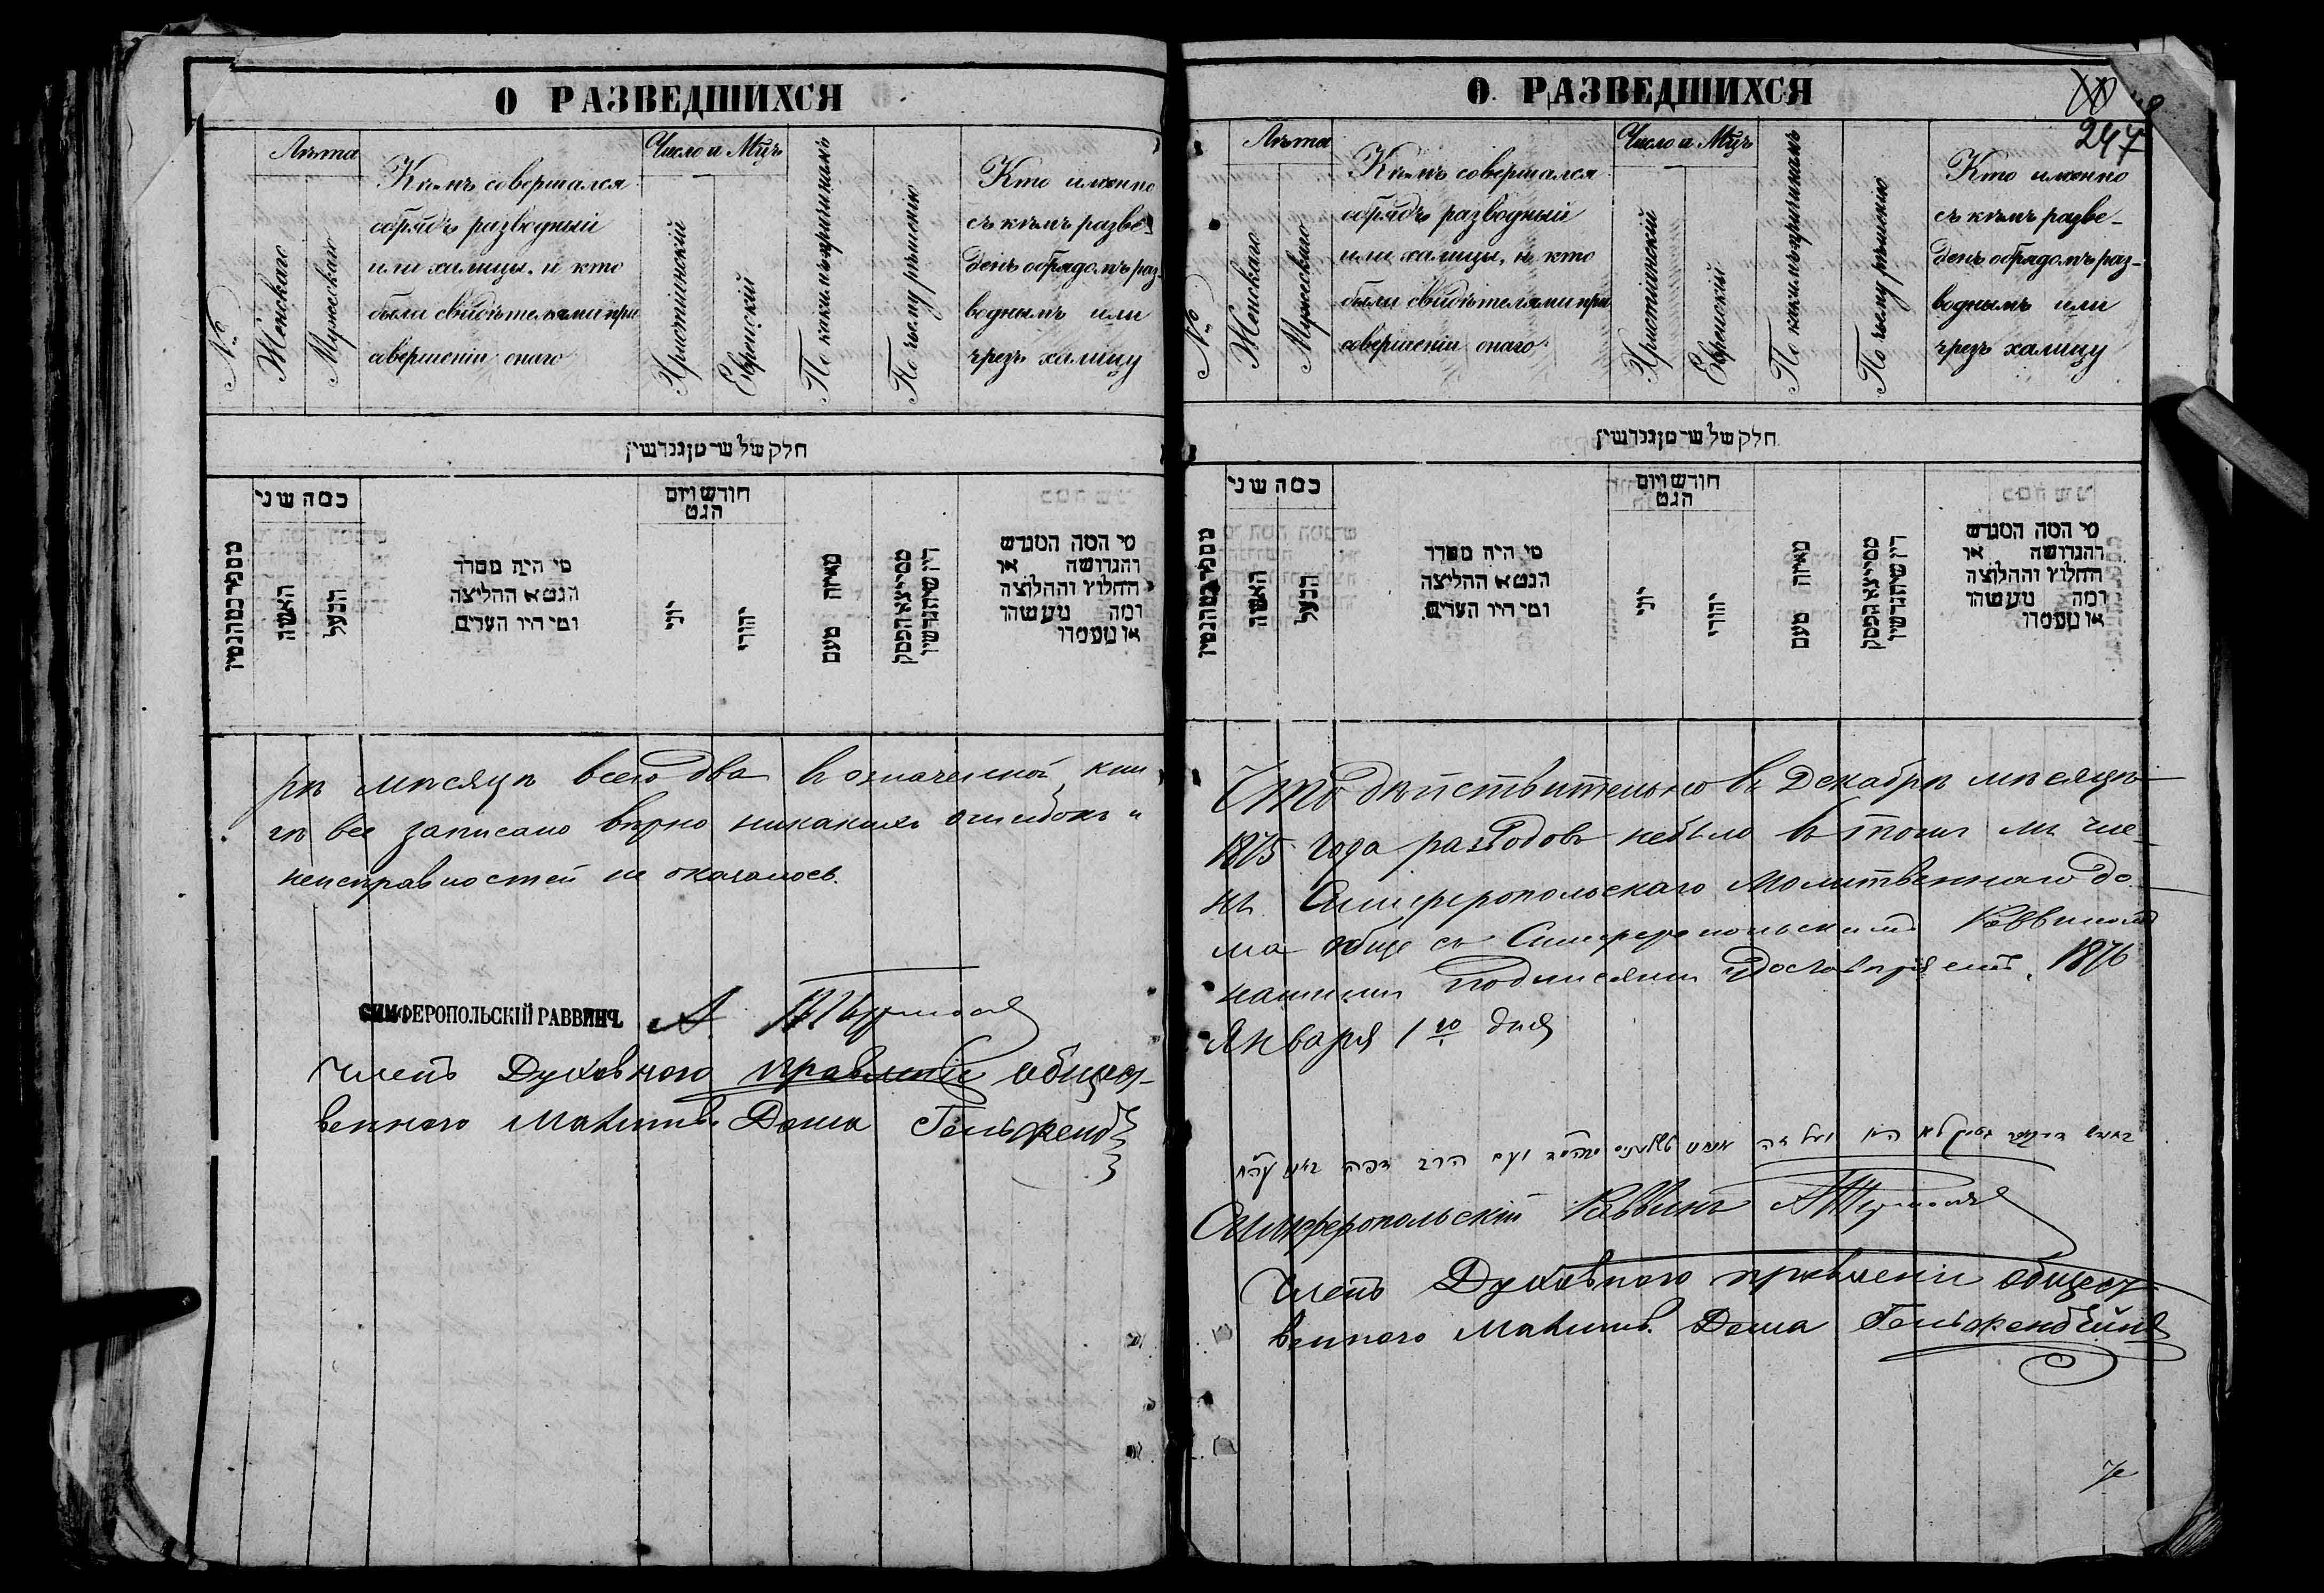 О РАЗВЕДШИХСЯ
№
Лѣта
Женскаго
Мужескаго
Кѣмъ совершался
обрядъ разводный
или халицы, и кто
были свидѣтелями при
совершеніи онаго
Число и Мцъ
Христіянскій
Еврейскій
По какимъ причинамъ
По чьему рѣшенію
Кто именно
съ кѣмъ разве-
денъ обрядомъ раз-
воднымъ или
чрезъ халицу
חלק של שרטן גנרשין
כמה שני
האשה
הבעל
מי היה מסדר
הגט א ההליצה
ומי היו העדים
חודש ויום
הגט
יוני
יהודי
מאיזה טעם
מי המה המגרש
והגרושה או
החלוץ וההלוצה
ומה מעשהו
או מעמדו
рѣ мѣсяцѣ всего два въ означенной кни
гѣ все записано вѣрно никакихъ ошибокъ и
неисправностей не оказалось.
СИМФЕРОПОЛЬСКІЙ РАВВИНЪ А.
Членъ Духовного правленіе общест-
венного Молитв. Дома
О РАЗВЕДШИХСЯ
247
№
Лѣта
Женскаго
Мужескаго
Кѣмъ совершался
обрядъ разводный
или халицы, и кто
были свидѣтелями при
совершеніи онаго
Число и Мцъ
Христіянскій
Еврейскій
По какимъ причинамъ
По чьему рѣшенію
Кто именно
съ кѣмъ разве-
денъ обрядомъ раз-
воднымъ или
чрезъ халицу
חלק של שרטן גנרשין
כמה שני
האשה
הבעל
מי היה מסדר
הגט א ההליצה
ומי היו העדים
חודש ויום
הגט
יוני
יהודי
מאיזה טעם
מי המה המגרש
והגרושה או
החלוץ וההלוצה
ומה מעשהו
או מעמדו
Что дѣйствительно въ Декабрѣ мѣсяцѣ
1875 года разводовъ небыло въ томъ мы чле-
ны Симферопольскаго Молитвеннаго до
ма обще съ Симферопольскимъ Раввиномъ
нашими подписями удостовѣряемъ. 1876
Января 1го дня
Симферопольскій Раввинъ
Членъ Духовного правленіи общест
венного Молитв. Дома